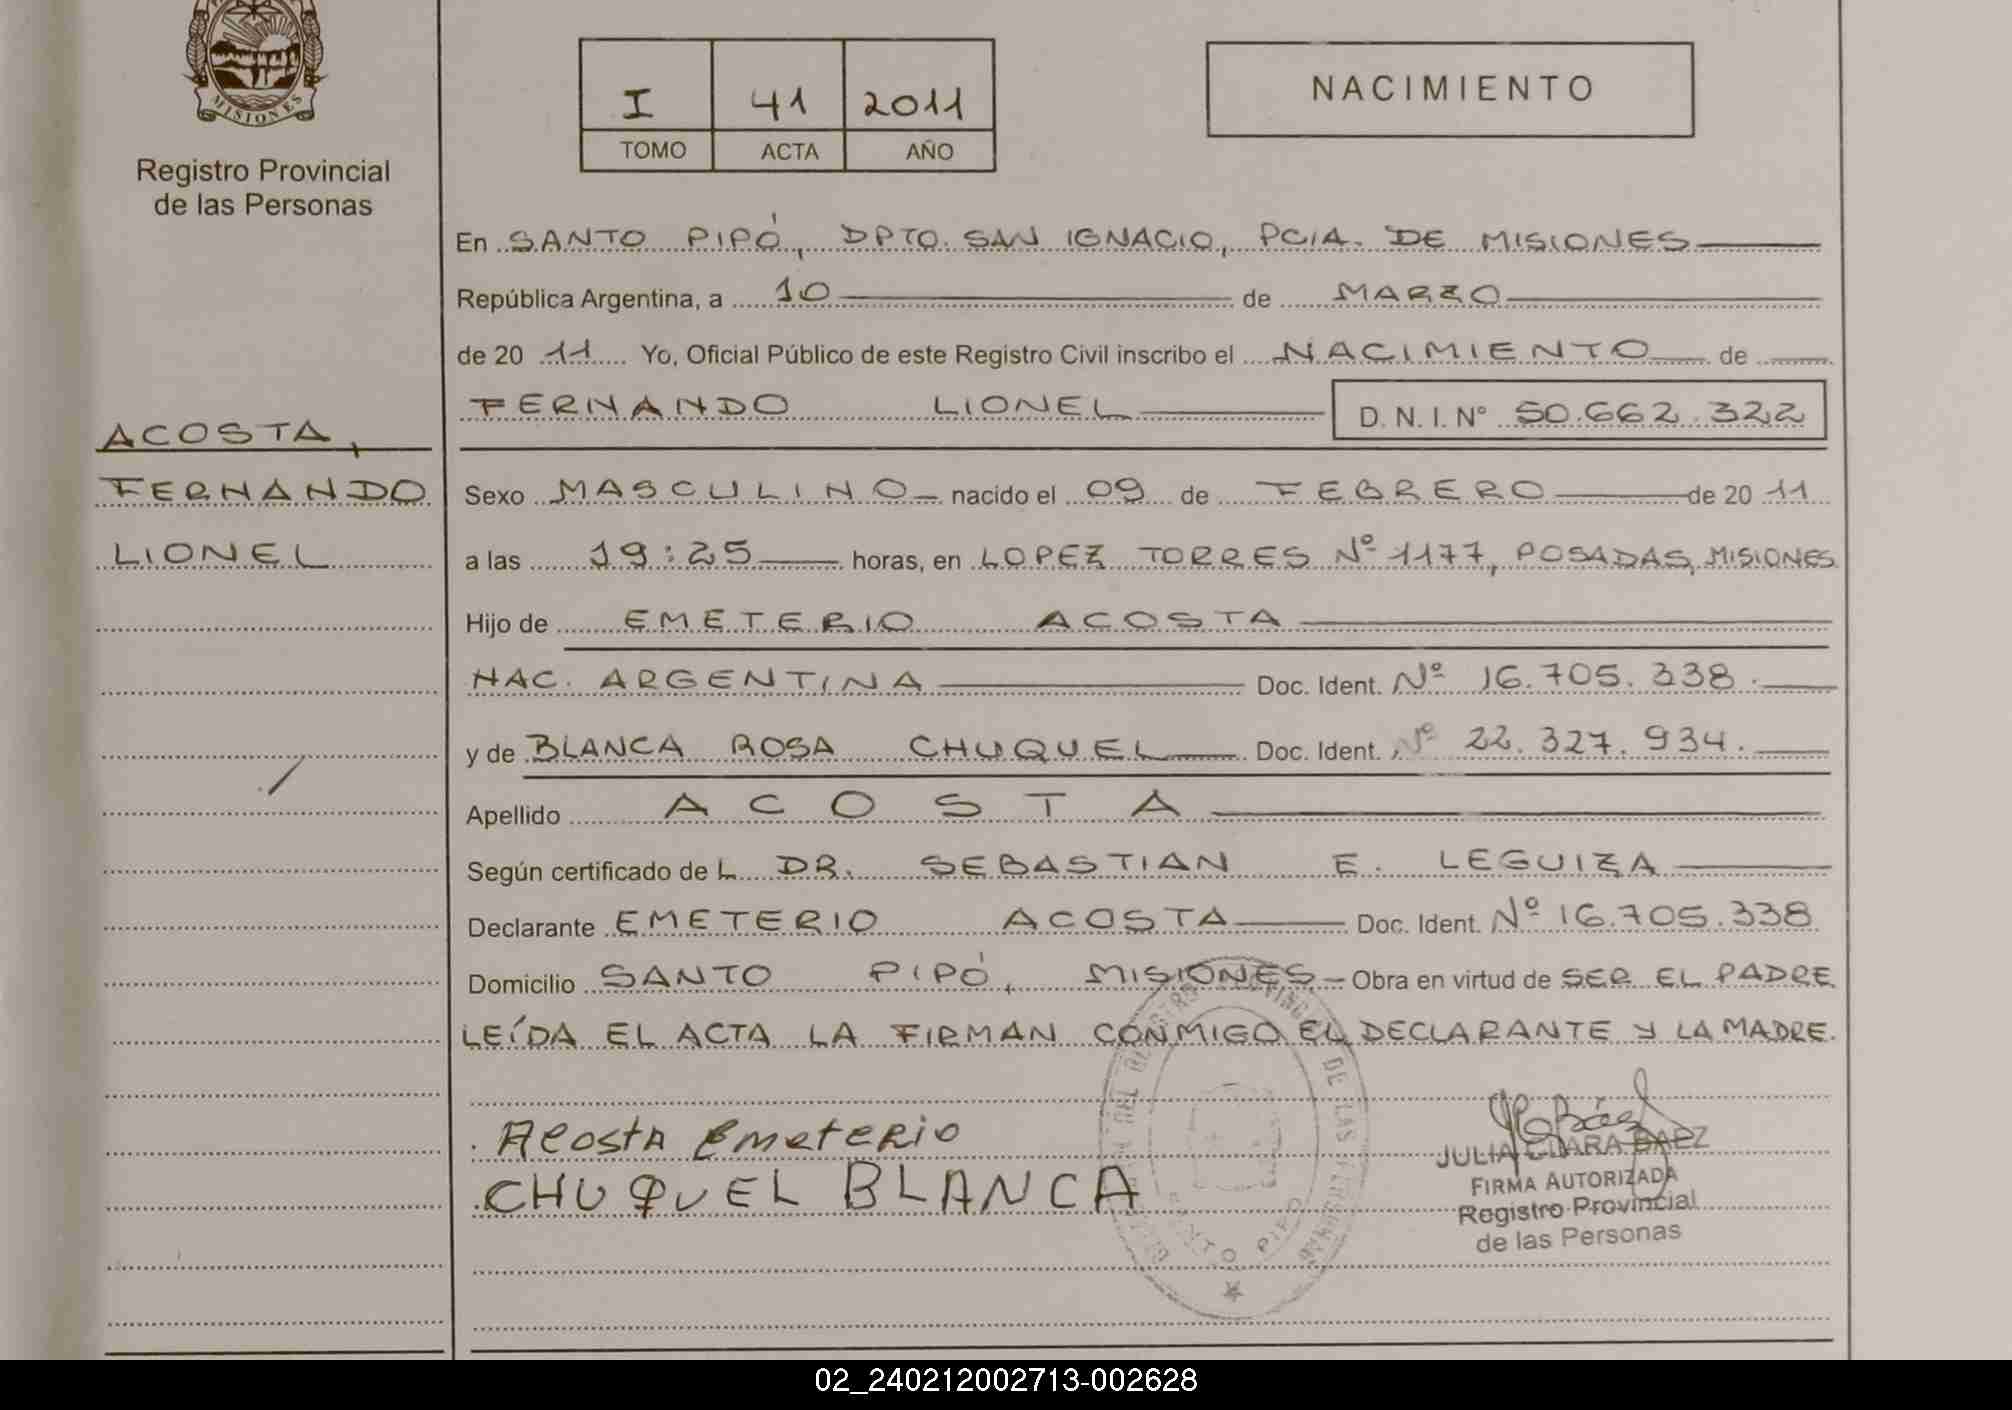 MISIONES
Registro Provincial
de las Personas
I 41 2011
TOMO ACTA AÑO
NACIMIENTO
En SANTO PIPÓ, DPTO. SAN IGNACIO, PCIA. DE MISIONES
República Argentina, a 10 de MARZO
de 20 11 Yo, Oficial Público de este Registro Civil inscribo el NACIMIENTO de
FERNANDO LIONEL D. N. I. N° 50.662.322
ACOSTA,
FERNANDO
LIONEL
Sexo MASCULINO nacido el 09 de FEBRERO de 20 11
a las 19:25 horas, en LOPEZ TORRES Nº 1177, POSADAS, MISIONES
Hijo de EMETERIO ACOSTA
NAC. ARGENTINA Doc. Ident. Nº 16.705.338.
y de BLANCA ROSA CHUQUEL Doc. Ident. Nº 22.327.934.
Apellido ACOSTA
Según certificado de L DR. SEBASTIAN E. LEGUIZA
Declarante EMETERIO ACOSTA Doc. Ident. Nº 16.705.338
Domicilio SANTO PIPÓ, MISIONES Obra en virtud de SER EL PADRE
LEÍDA EL ACTA LA FIRMAN CONMIGO EL DECLARANTE Y LA MADRE.
Acosta Emeterio
CHUQUEL BLANCA
DE LAS PERSONAS
SANTO PIPO
JULIA CLARA BAEZ
FIRMA AUTORIZADA
Registro Provincial
de las Personas
02_240212002713-002628